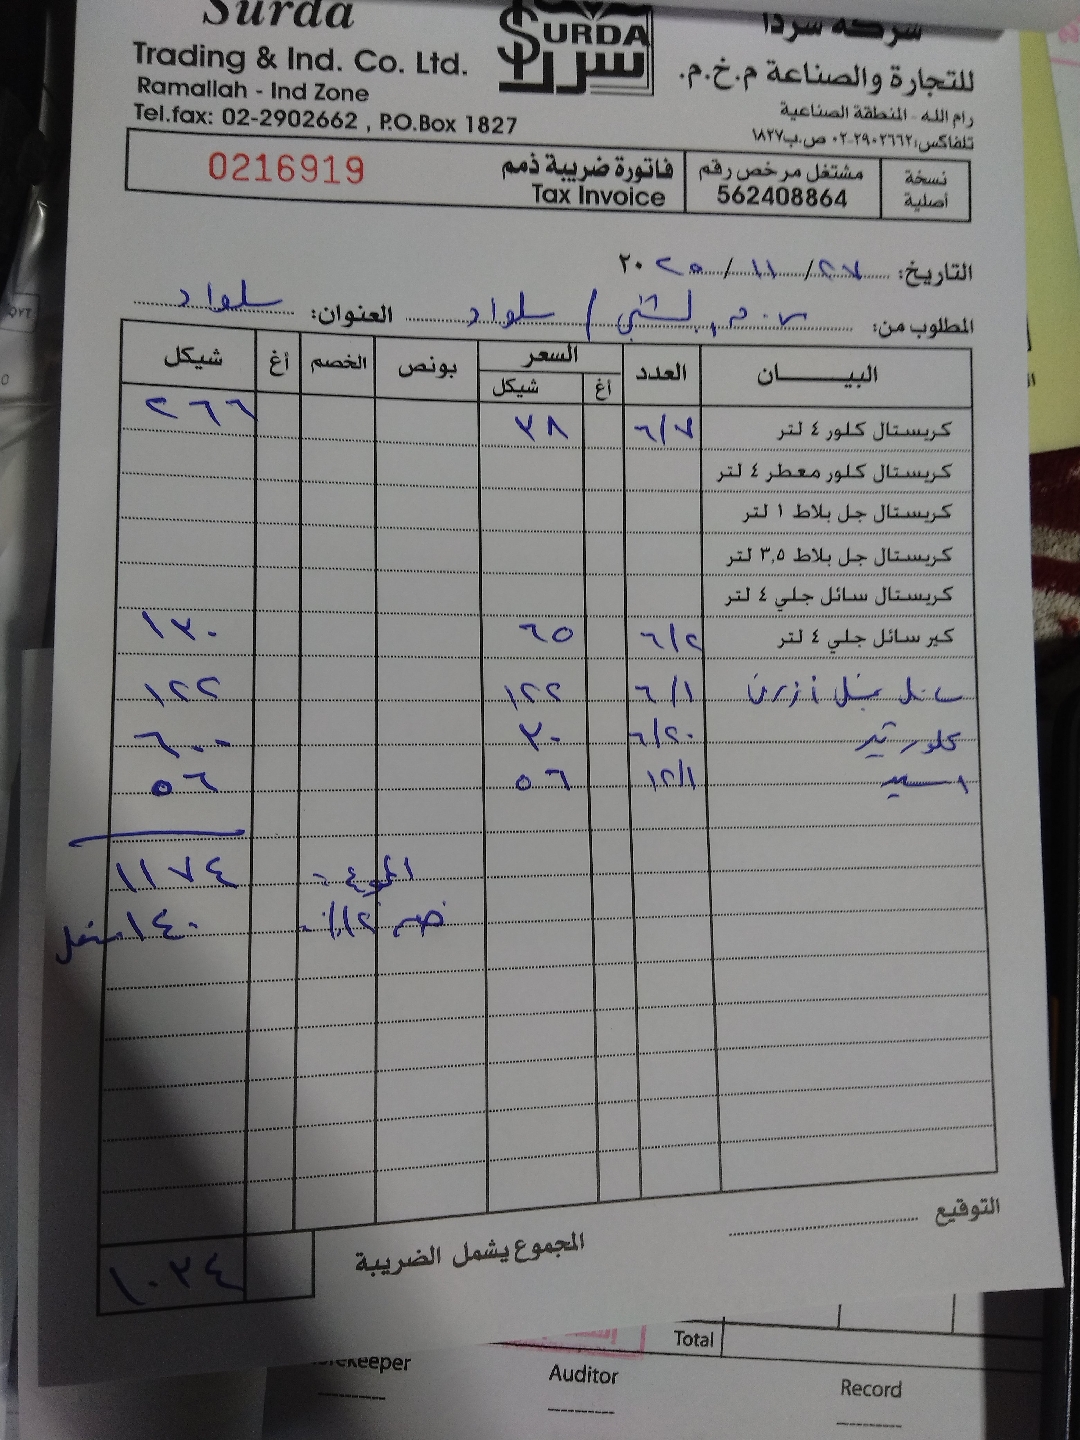 Surda
شركة سردا
SURDA
سردا
Trading & Ind. Co. Ltd.
للتجارة والصناعة م.خ.م.
Ramallah - Ind Zone
رام الله - المنطقة الصناعية
Tel.fax: 02-2902662 , P.O.Box 1827
تلفاكس: ٢٩٠٢٦٦٢-٠٢ ص.ب ١٨٢٧
نسخة أصلية
مشتغل مرخص رقم
562408864
فاتورة ضريبة ذمم
Tax Invoice
0216919
التاريخ: ٢٧ / ١١ / ٢٠٢٥
المطلوب من: / سلواد العنوان: سلواد
البيـــــــان العدد السعر بونص الخصم أغ شيكل
أغ شيكل
كريستال كلور ٤ لتر ٦/٧ ٣٨ ٢٦٦
كريستال كلور معطر ٤ لتر
كريستال جل بلاط ١ لتر
كريستال جل بلاط ٣,٥ لتر
كريستال سائل جلي ٤ لتر
كير سائل جلي ٤ لتر ٦/٢ ٦٥ ١٣٠
سائل أزرق ٦/١ ١٢٢ ١٢٢
كلور ٦/٢٠ ٣٠ ٦٠٠
اسيد ١٢/١ ٥٦ ٥٦
المجموع = ١١٧٤
خصم ١٢٪ = ١٤٠ شيكل
التوقيع
المجموع يشمل الضريبة ١٠٣٤
Total
Auditor
Record